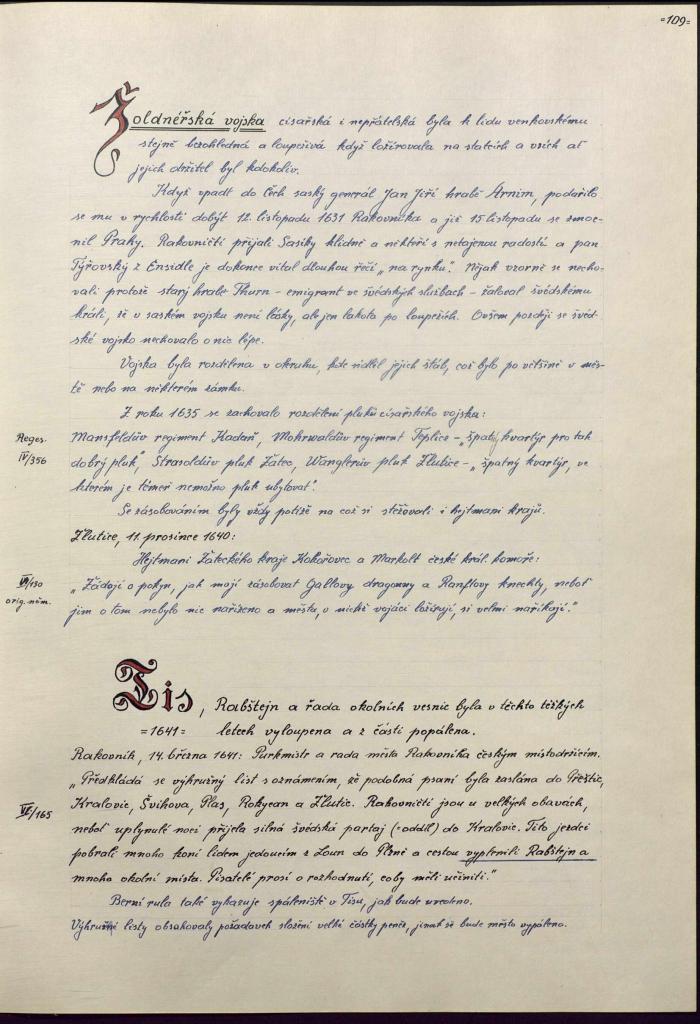 =109=
Žoldnéřská vojska císařská i nepřátelská byla k lidu venkovskému
stejně bezohledná a loupeživá když ložírovala na statcích a vsích ať
jejich držitel byl kdokoliv.
Když vpadl do Čech saský generál Jan Jiří hrabě Arnim, podařilo
se mu v rychlosti dobýt 12. listopadu 1631 Rakovníka a již 15 listopadu se zmoc-
nil Prahy. Rakovničtí přijali Sasíky klidně a někteří s netajenou radostí a pan
Týřovský z Ensidle je dokonce vítal dlouhou řečí „na rynku". Nijak vzorně se necho-
vali protože starý hrabě Thurn - emigrant ve švédských službách - žaloval švédskému
králi, že v saském vojsku není lásky, ale jen lakota po loupežích. Ovšem později se švéd-
ské vojsko nechovalo o nic lépe.
Vojska byla rozdělena v okruhu, kde sídlil jejich štáb, což bylo po většině v měs-
tě nebo na některém zámku.
Z roku 1635 se zachovalo rozdělení pluků císařského vojska:
Reges.
IV/356
Mansfeldův regiment Kadaň, Mohrwaldův regiment Teplice - „špatný kvartýr pro tak
dobrý pluk", Strasoldův pluk Žatec, Wanglerův pluk Žlutice - „špatný kvartýr, ve
kterém je téměř nemožno pluk ubytovat".
Se zásobováním byly vždy potíže na což si stěžovali i hejtmani krajů.
Žlutice, 11. prosince 1640:
Hejtmani Žateckého kraje Kokořovec a Markolt české král. komoře:
VI/130
orig. něm.
„Žádají o pokyn, jak mají zásobovat Gallovy dragouny a Ranftovy knechty, neboť
jim o tom nebylo nic nařízeno a města, v nichž vojáci ložírují, si velmi naříkají."
Tis, Rabštejn a řada okolních vesnic byla v těchto těžkých
=1641= letech vyloupena a z části popálena.
Rakovník, 14. března 1641: Purkmistr a rada města Rakovníka českým místodržícím.
„Předkládá se výhružný list s oznámením, že podobná psaní byla zaslána do Přeštic,
VI/165
Kralovic, Švihova, Plas, Rokycan a Žlutic. Rakovničtí jsou u velkých obavách,
neboť uplynulé noci přijela silná švédská partaj (=oddíl) do Kralovic. Tito jezdci
pobrali mnoho koní lidem jedoucím z Loun do Plzně a cestou vyplenili Rabštejn a
mnoho okolní místa. Pisatelé prosí o rozhodnutí, co by měli učiniti."
Berní rula také vykazuje spáleniště v Tisu, jak bude uvedeno.
Výhružné listy obsahovaly požadavek složení velké částky peněz, jinak že bude město vypáleno.